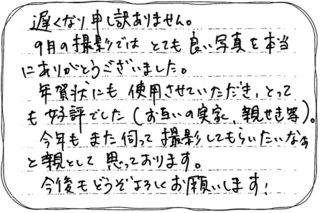 遅くなり申し訳ありません。
9月の撮影では とても良い写真を本当
にありがとうございました。
年賀状にも 使用させていただき、とって
も好評でした（お互いの実家、親せき等）。
今年も また伺って 撮影してもらいたいなぁ
と親として 思っております。
今後もどうぞよろしくお願いします！